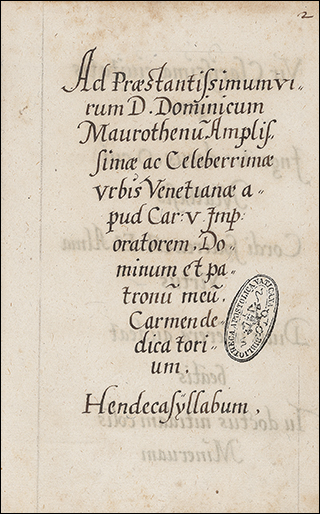 2
Ad Præstantissimum vi-
rum D. Dominicum
Maurothenũ Amplis,
simæ ac Celeberrimæ
vrbis Venetianæ a-
pud Car. v Imp.
oratorem, Do-
minum et pa-
tronũ meũ,
Carmen de-
dicatori-
um.
Hendecasyllabum,
BIBLIOTHECA APOSTOLICA VATICANA